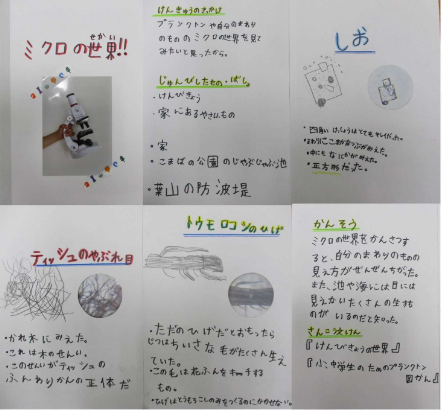 ミクロの世界!!
せかい
けんきゅうのきっかけ
プランクトンや自分のまわり
のもののミクロの世界を見て
みたいと思ったから。
じゅんびしたもの・ばしょ
・けんびきょう
・家にあるやさいもの
・家
・こまばの公園のじゃぶじゃぶ池
・葉山の防波堤
しお
・四角い
・正方形だった。
ティッシュのやぶれ目
・かれ木にみえた。
・これは木のせんい。
・このせいがティッシュの
ふんわりかんの正体だ
トウモロコシのひげ
・ただのひげだとおもったら
じつはちいさな毛がたくさん生え
ていた。
・この毛は花ふんをキャッチする
もの。
・ひげはとうもろこしのみをつくるのにかかせない。
かんそう
ミクロの世界をかんさつす
ると、自分のまわりのものの
見え方がぜんぜんちがった。
また、池や海には目には
見えないたくさんの生もの
がいるのだと知った。
さんこう文けん
『けんびきょうの世界』
『小・中学生のためのプランクトン
図かん』